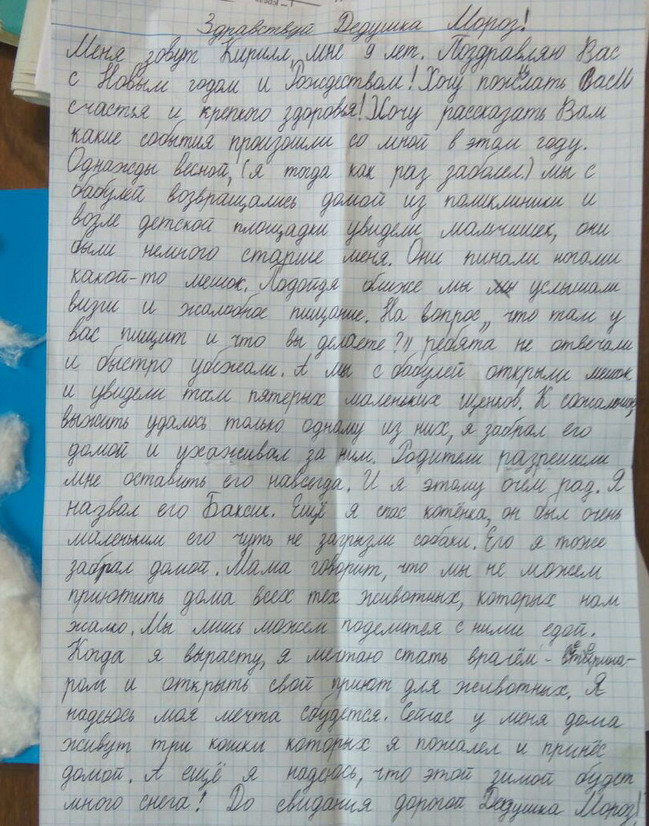 Здравствуй Дедушка Мороз!
Меня зовут Кирилл, мне 9 лет. Поздравляю Вас
с Новым годом и Рождеством! Хочу пожелать Вам
счастья и крепкого здоровья! Хочу рассказать Вам
какие события произошли со мной в этом году.
Однажды весной, (я тогда как раз заболел.) мы с
бабулей возвращались домой из поликлиники и
возле детской площадки увидели мальчишек, они
были немного старше меня. Они пинали ногами
какой-то мешок. Подойдя ближе мы услышали
визги и жалобное пищание. На вопрос „ что там у
вас пищит и что вы делаете?" ребята не отвечали
и быстро убежали. А мы с бабулей открыли мешок
и увидели там пятерых маленьких щенков. К сожалению
выжить удалось только одному из них, я забрал его
домой и ухаживал за ним. Родители разрешили
мне оставить его навсегда. И я этому очен рад. Я
назвал его Баксик. Ещё я спас котёнка, он был очень
маленьким его чуть не загрызли собаки. Его я тоже
забрал домой. Мама говорит, что мы не можем
приютить дома всех тех животных, которых нам
жалко. Мы лишь можем поделится с ними едой.
Когда я вырасту, я мечтаю стать врачём - ветерина-
ром и открыть свой приют для животных. Я
надеюсь моя мечта сбудется. Сейчас у меня дома
живут три кошки которых я пожалел и принёс
домой. А ещё я надеюсь, что этой зимой будет
много снега! До свидания дорогой Дедушка Мороз!